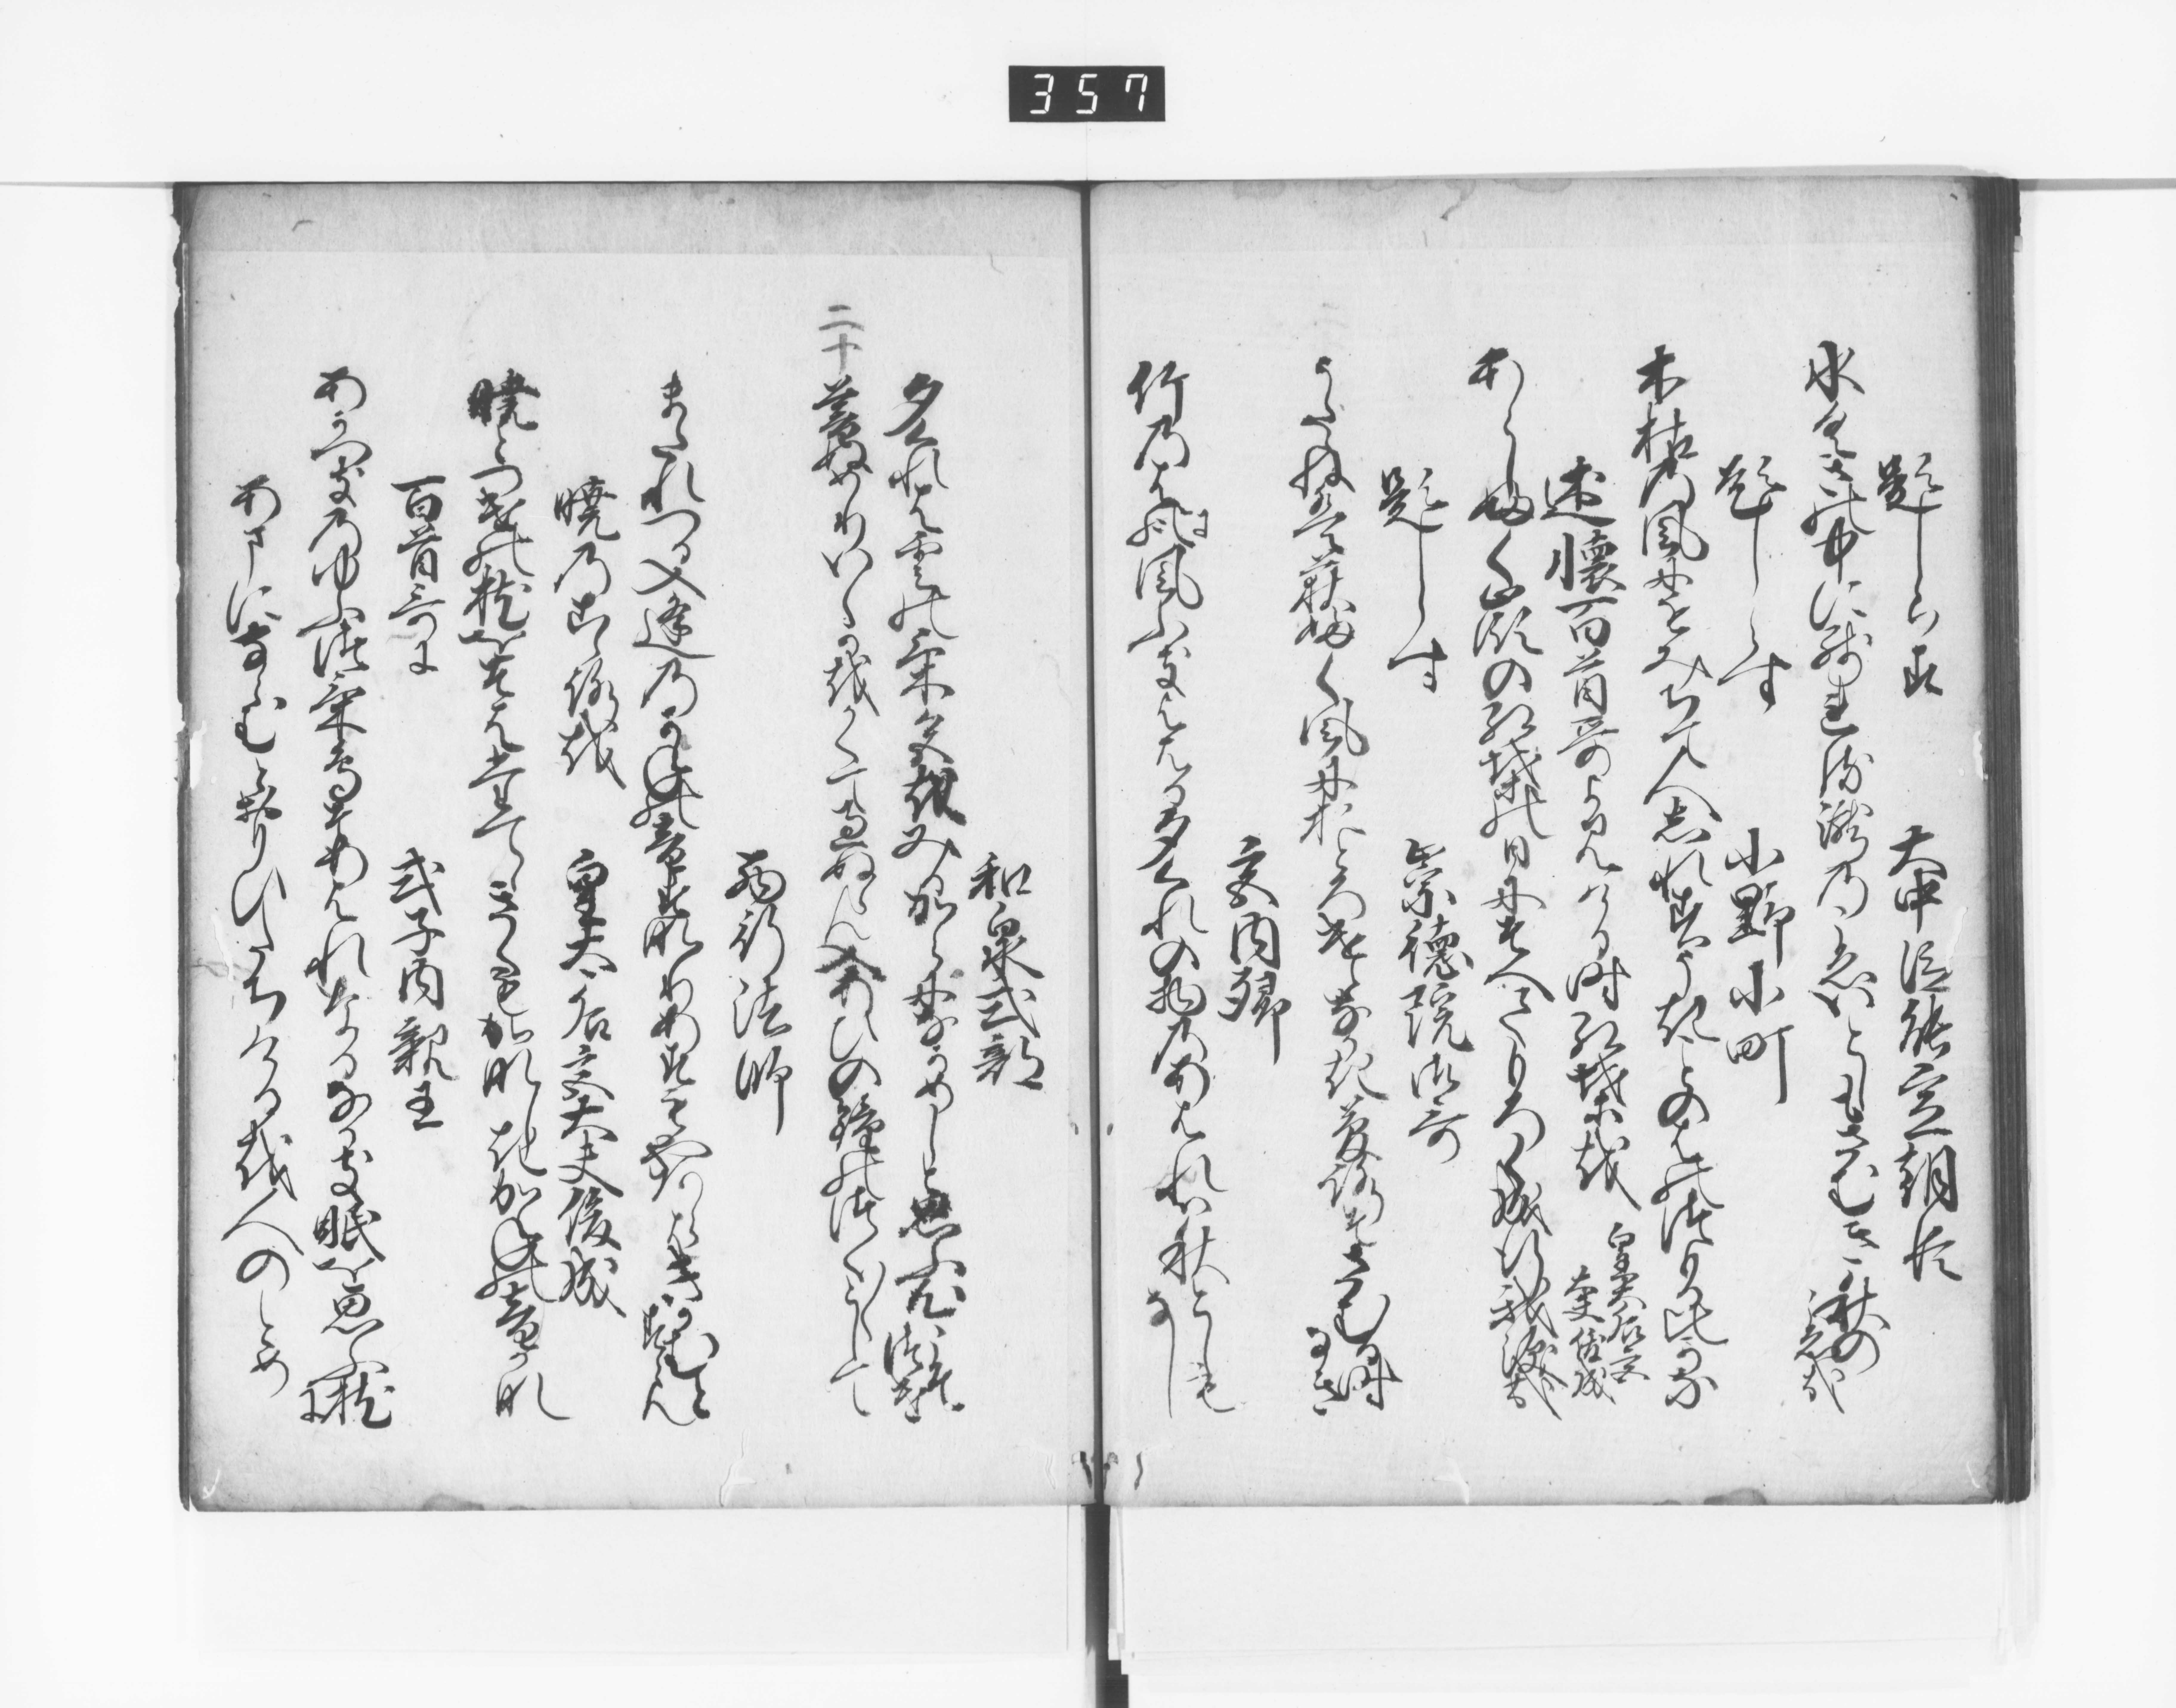 357
題しらす
大中臣能宣朝臣
水くきの中に残れる瀧の声いとしもさむき秋の
こゑ哉
題しらす
小野小町
木枯の風にもみちて人しれすうきことのはのつもる比かな
述懐百首哥よみける時紅葉を
皇太后宮
大夫俊成
あらしふく山のの紅葉の日にそへてもろく成行我涙哉
題しらす
崇徳院御哥
うたゝねは荻ふく風におとろけとなかき夢路そさむる時
なき
宮内卿
竹のはに風ふきよはる夕くれの物のあはれは秋としも
なし
和泉式部
夕くれは雲のけしきをみるからになかめしと思ふ心こそつけ
二十
暮ぬめりいくかをかくて過ぬらん入あひの鐘のつくつくとして
西行法師
またれつる入逢のかねの音すなりあすもやあらはきかむと
すらん
暁のこゝろを
皇太后宮大夫俊成
暁とつけの枕をそはたてゝきくもかなしきかねの音かな
百首哥に
式子内親王
あかつきのゆふつけ鳥そあはれなるなかき眠を思ふ枕
に
あまにならむと思ひたちけるを人のとゝめ